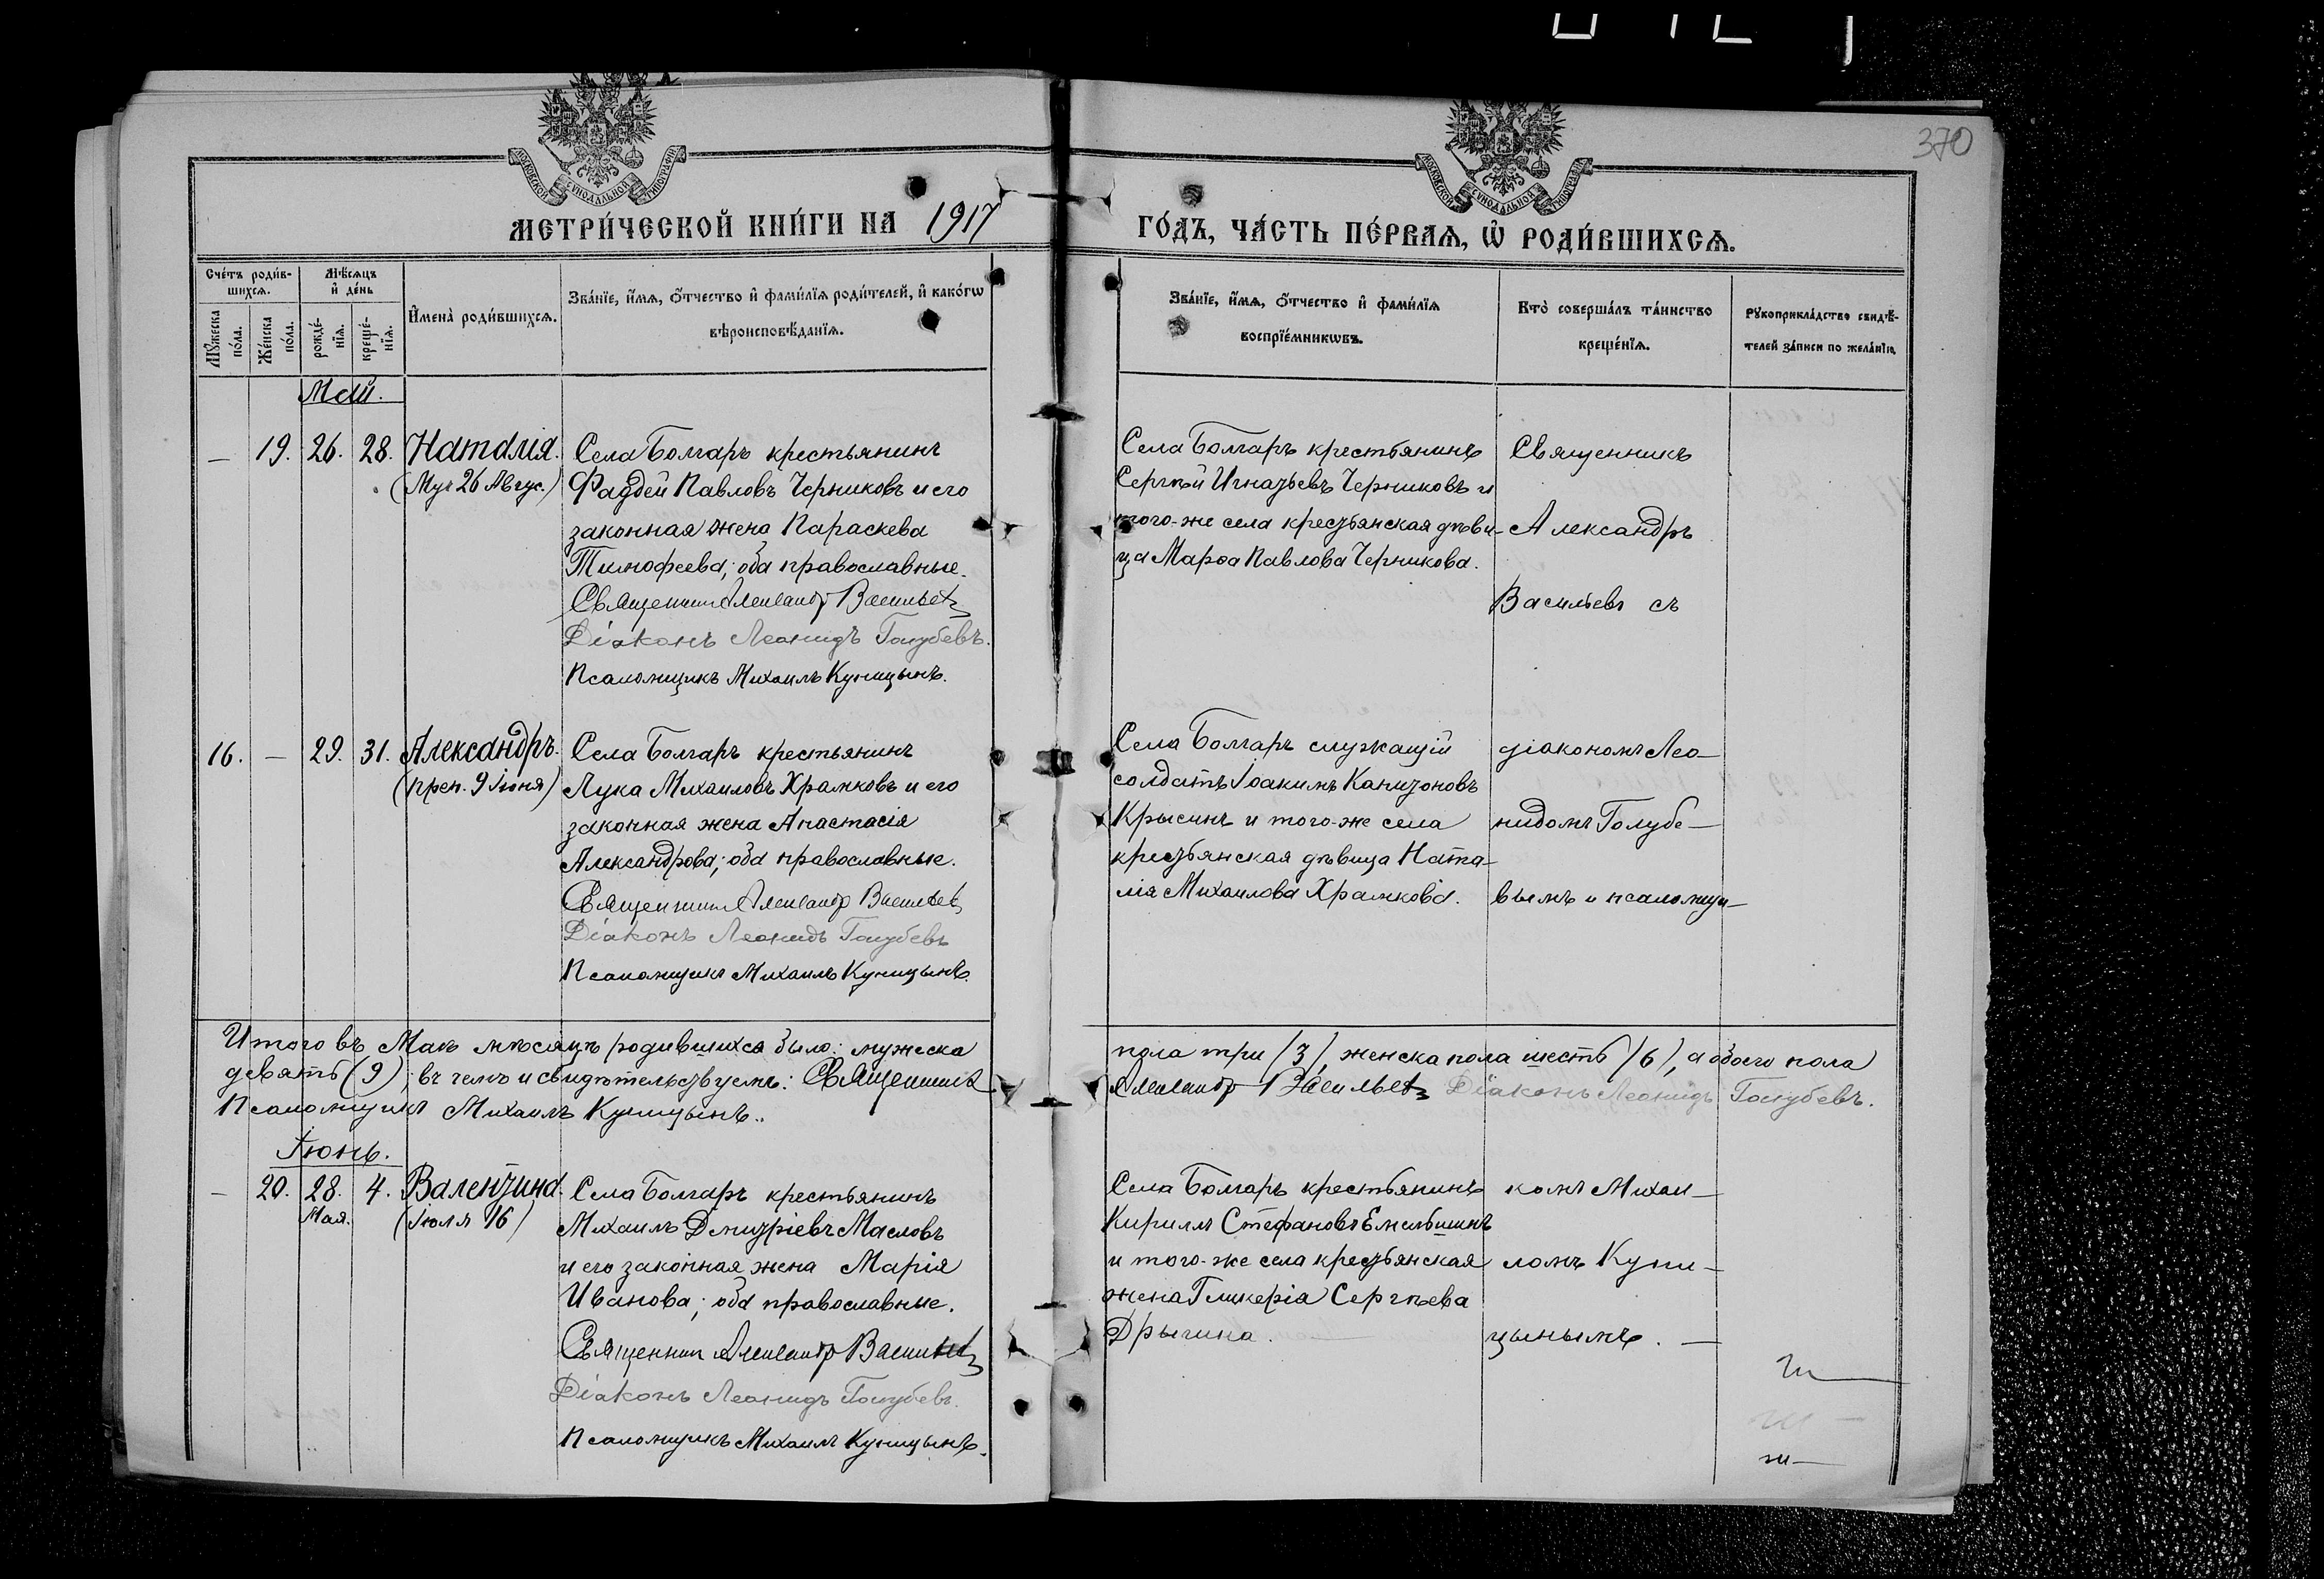 370
МОСКОВСКОЙ СѴНОДАЛЬНОЙ ТИПОГРАФІИ
МОСКОВСКОЙ СѴНОДАЛЬНОЙ ТИПОГРАФІИ
МЕТРИ́ЧЕСКОЙ КНИ́ГИ НА 1917
ГО́ДЪ, ЧА́СТЬ ПЕ́РВАѦ, Ѡ҆ РОДИ́ВШИХСѦ.
Сче́тъ роди́в-
шихсѧ.
Мꙋ́жеска по́ла.
Же́нска по́ла.
Мѣ́сѧцъ
и҆ де́нь
рожде́-
нїѧ.
креще́-
нїѧ.
И҆мена̀ роди́вшихсѧ.
Зва́нїе, и҆́мѧ, ѻ҆́тчество и҆ фами́лїѧ роди́телей, и҆ како́гѡ
вѣроисповѣ́данїѧ.
Зва́нїе, и҆́мѧ, ѻ҆́тчество и҆ фами́лїѧ
воспрїе́мникѡвъ.
Кто̀ соверша́лъ та́инство
креще́нїѧ.
Рꙋкоприкла́дство свидѣ́-
телей за́писи по жела́нїю.
Май.
— 19. 26. 28. Наталія.
(Муч 26 Авгус.)
Села Болгаръ крестьянинъ
Фаддей Павловъ Черниковъ и его
законная жена Параскева
Тимофеева; оба православные.
Священник Александр Васильевъ
Діаконъ Леонидъ Голубевъ.
Псаломщикъ Михаилъ Куницынъ.
Села Болгаръ крестьянинъ
Сергѣй Игнатьевъ Черниковъ и
того-же села крестьянская дѣви-
ца Марѳа Павлова Черникова.
Священникъ
Александръ
Васильевъ съ
16. — 29. 31. Александръ.
(преп. 9 Іюня)
Села Болгаръ крестьянинъ
Лука Михаиловъ Храмковъ и его
законная жена Анастасія
Александрова; оба православные.
Священник Александр Васильевъ
Діаконъ Леонидъ Голубевъ
Псаломщикъ Михаилъ Куницынъ.
Села Болгаръ служащій
солдатъ Іоакимъ Капитоновъ
Крысинъ и того-же села
крестьянская дѣвица Ната-
лія Михаилова Храмкова.
діакономъ Лео-
нидомъ Голубе-
вымъ и псаломщи-
Итого въ Маѣ мѣсяцѣ родившихся было: мужеска
пола три (3), женска пола шесть (6), а обоего пола
девять (9); въ чемъ и свидѣтельствуемъ: Священникъ
Александр Васильевъ Діаконъ Леонидъ Голубевъ.
Псаломщикъ Михаилъ Куницынъ.
Іюнь.
— 20. 28. 4. Валентина.
Мая. (Іюля 16)
Села Болгаръ крестьянинъ
Михаилъ Димитріевъ Масловъ
и его законная жена Марія
Иванова; оба православные.
Священник Александр Васильевъ
Діаконъ Леонидъ Голубевъ.
Псаломщикъ Михаилъ Куницынъ.
Села Болгаръ крестьянинъ
Кириллъ Стефановъ Емельшинъ
и того-же села крестьянская
жена Гликерія Сергѣева
Дрыгина.
комъ Михаи-
ломъ Куни-
цынымъ.